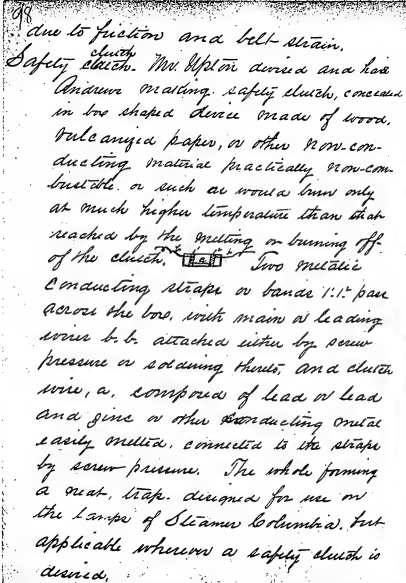 98
due to friction and belt strain.
clutch
Safety clutch. Mr. Upton devised and has
Andrews making safety clutch, concealed
in box shaped device made of wood,
vulcanized paper, or other non-con-
ducting material practically non-com-
bustable. or such as would burn only
at much higher temperature than that
reached by the melting or burning off
of the clutch. a Two metalic
conducting straps or bands 1.1. pass
across the box, with main or leading
wires b.b. attached either by screw
pressure or soldering thereto, and clutch
wire, a, composed of lead or lead
and zinc or other conducting metal
easily melted, connected to the straps
by screw pressure. The whole forming
a neat, trap. designed for use on
the lamps of Steamer Columbia. but
applicable wherever a safety clutch is
desired.